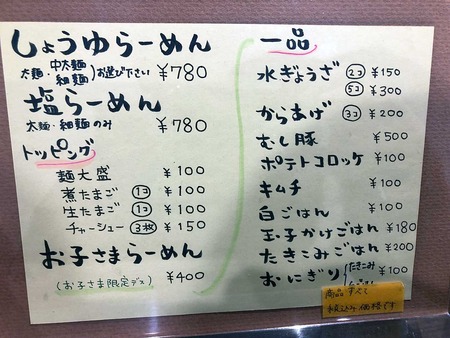 しょうゆらーめん
太麺・中太麺 細麺 )お選び下さい ¥780
塩らーめん
太麺・細麺のみ ¥780
トッピング
麺大盛 ¥100
煮たまご 1コ ¥100
生たまご 1コ ¥100
チャーシュー 3枚 ¥150
お子さまらーめん
(お子さま限定デス) ¥400
一品
水ぎょうざ 2コ ¥150
5コ ¥300
からあげ 3コ ¥200
むし豚 ¥500
ポテトコロッケ ¥100
キムチ ¥100
白ごはん ¥100
玉子かけごはん ¥180
たきこみごはん ¥200
おにぎり (たきこみ ¥100
商品すべて
税込み価格です